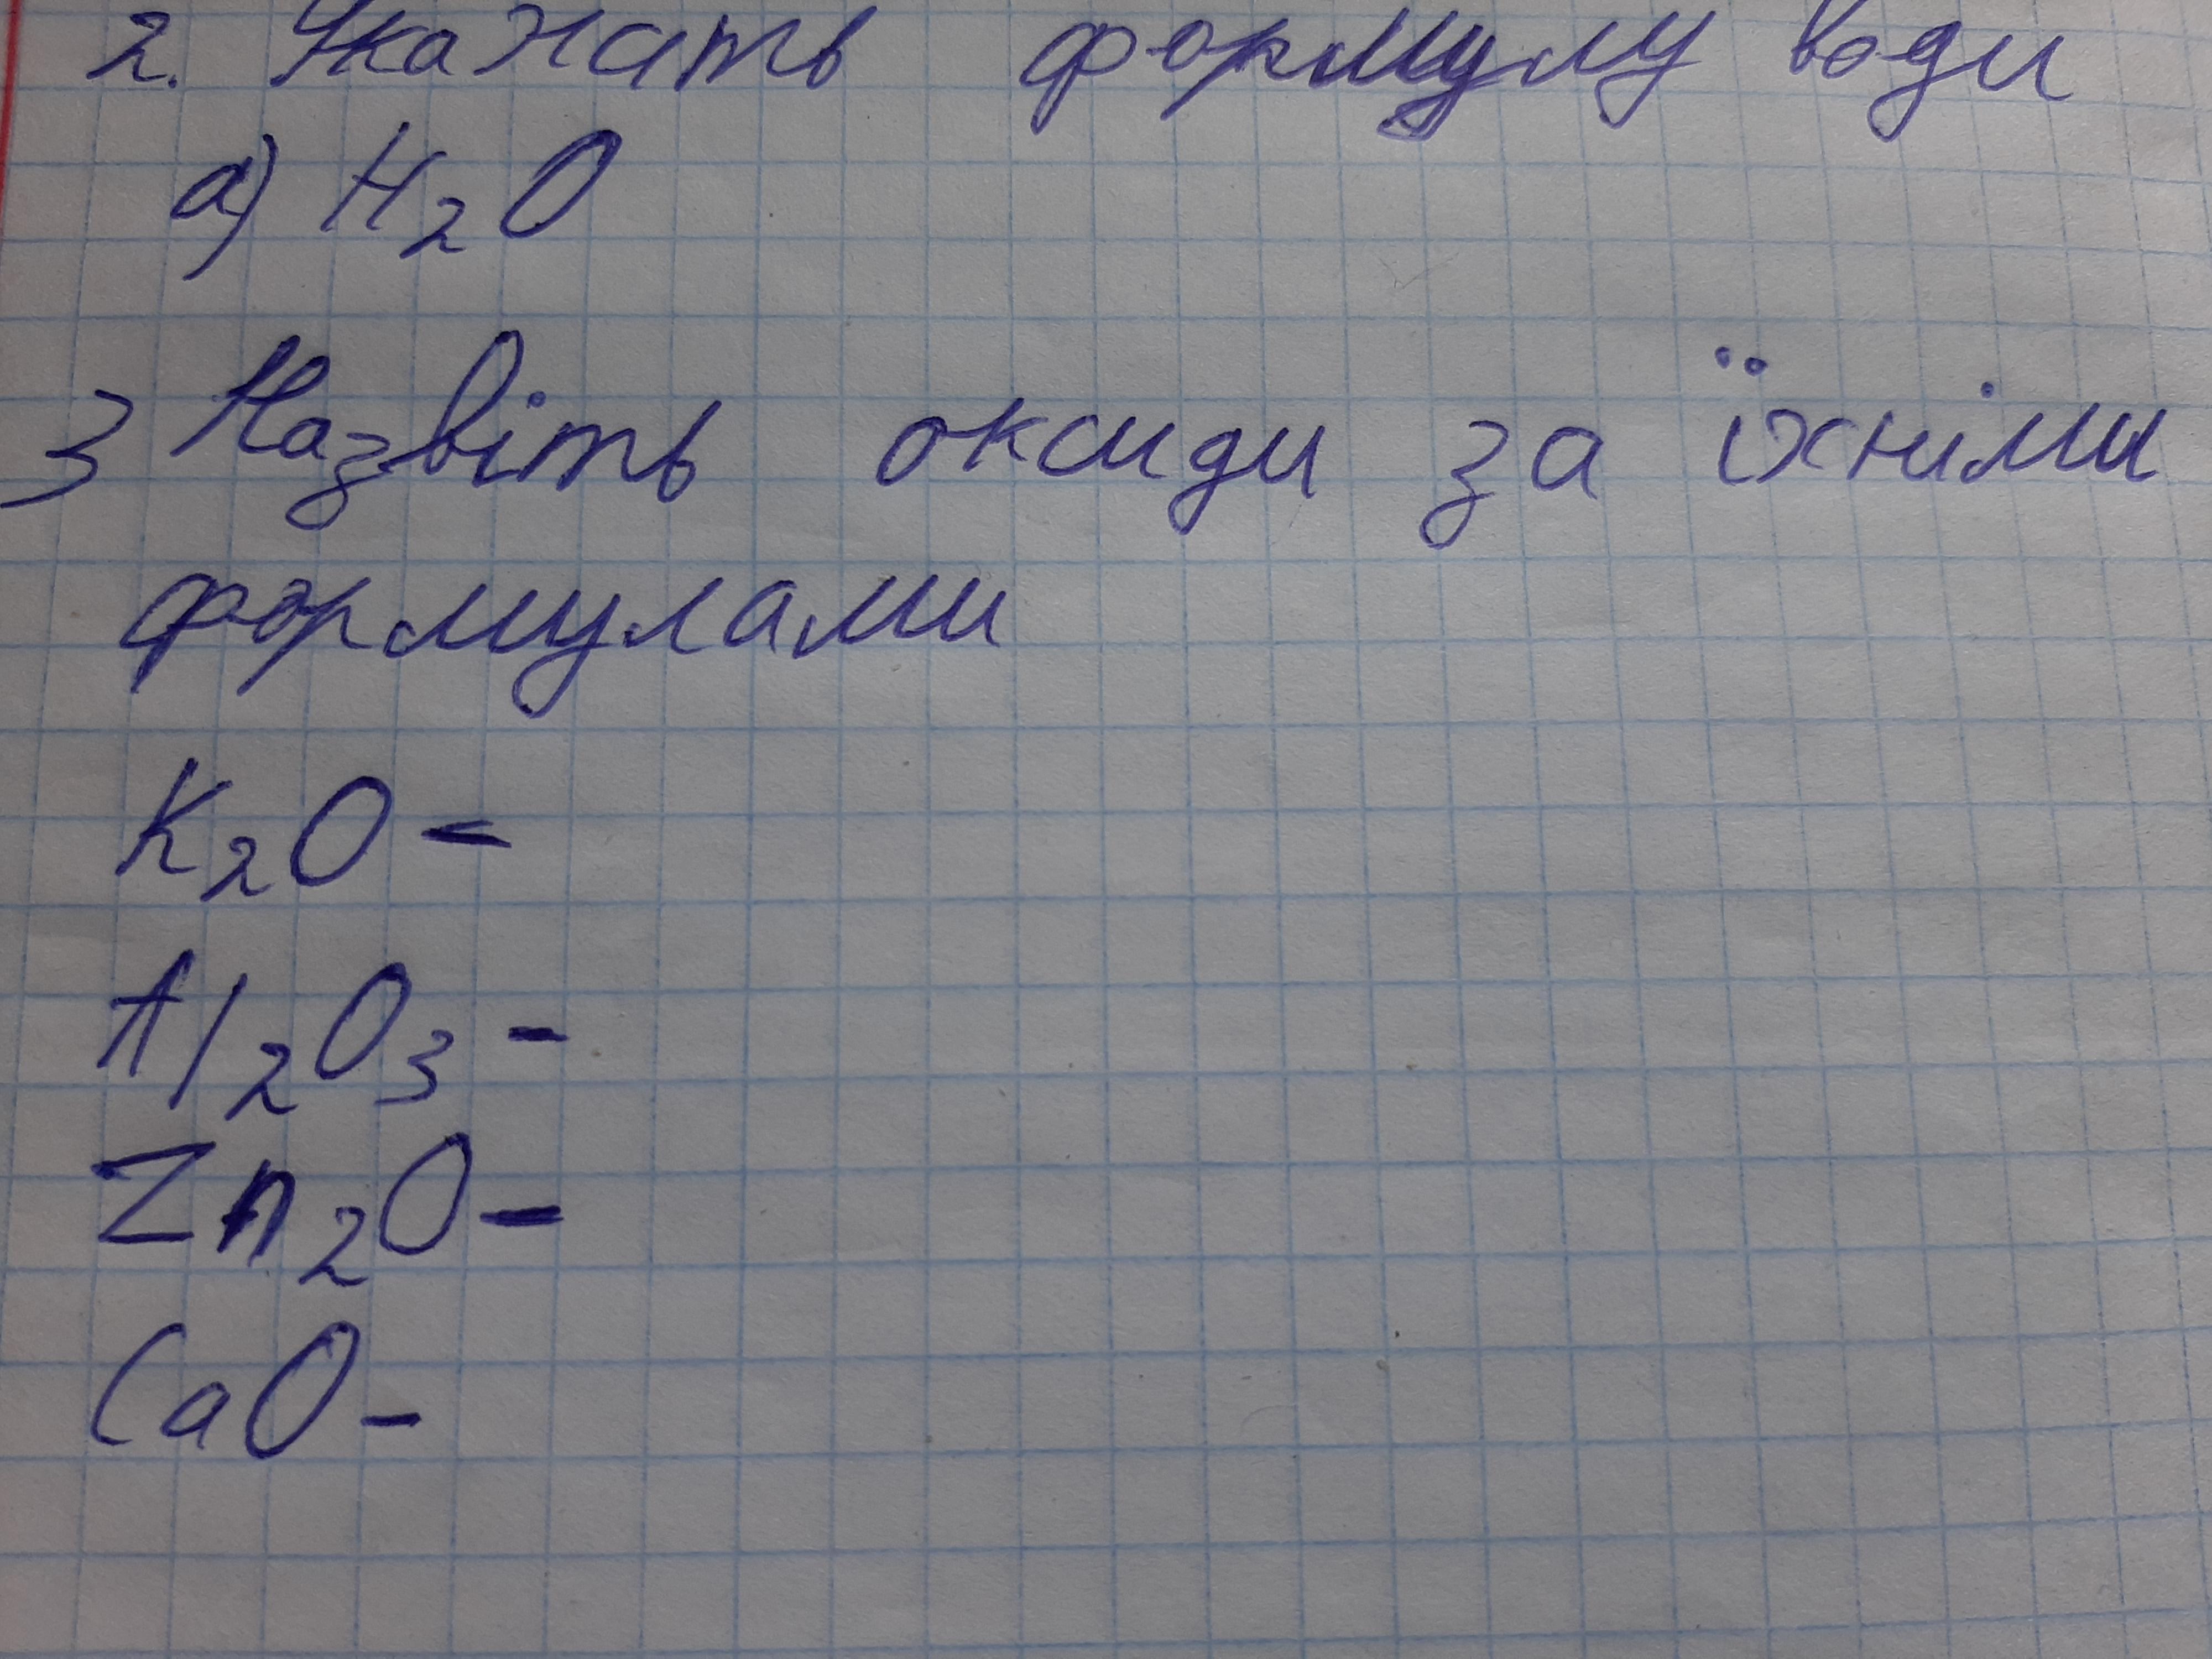 2. Укажать формулу води
а) H₂O
3 Назвіть оксиди за їхніми
формулами
K₂O -
Al₂O₃ -
Zn₂O -
CaO -